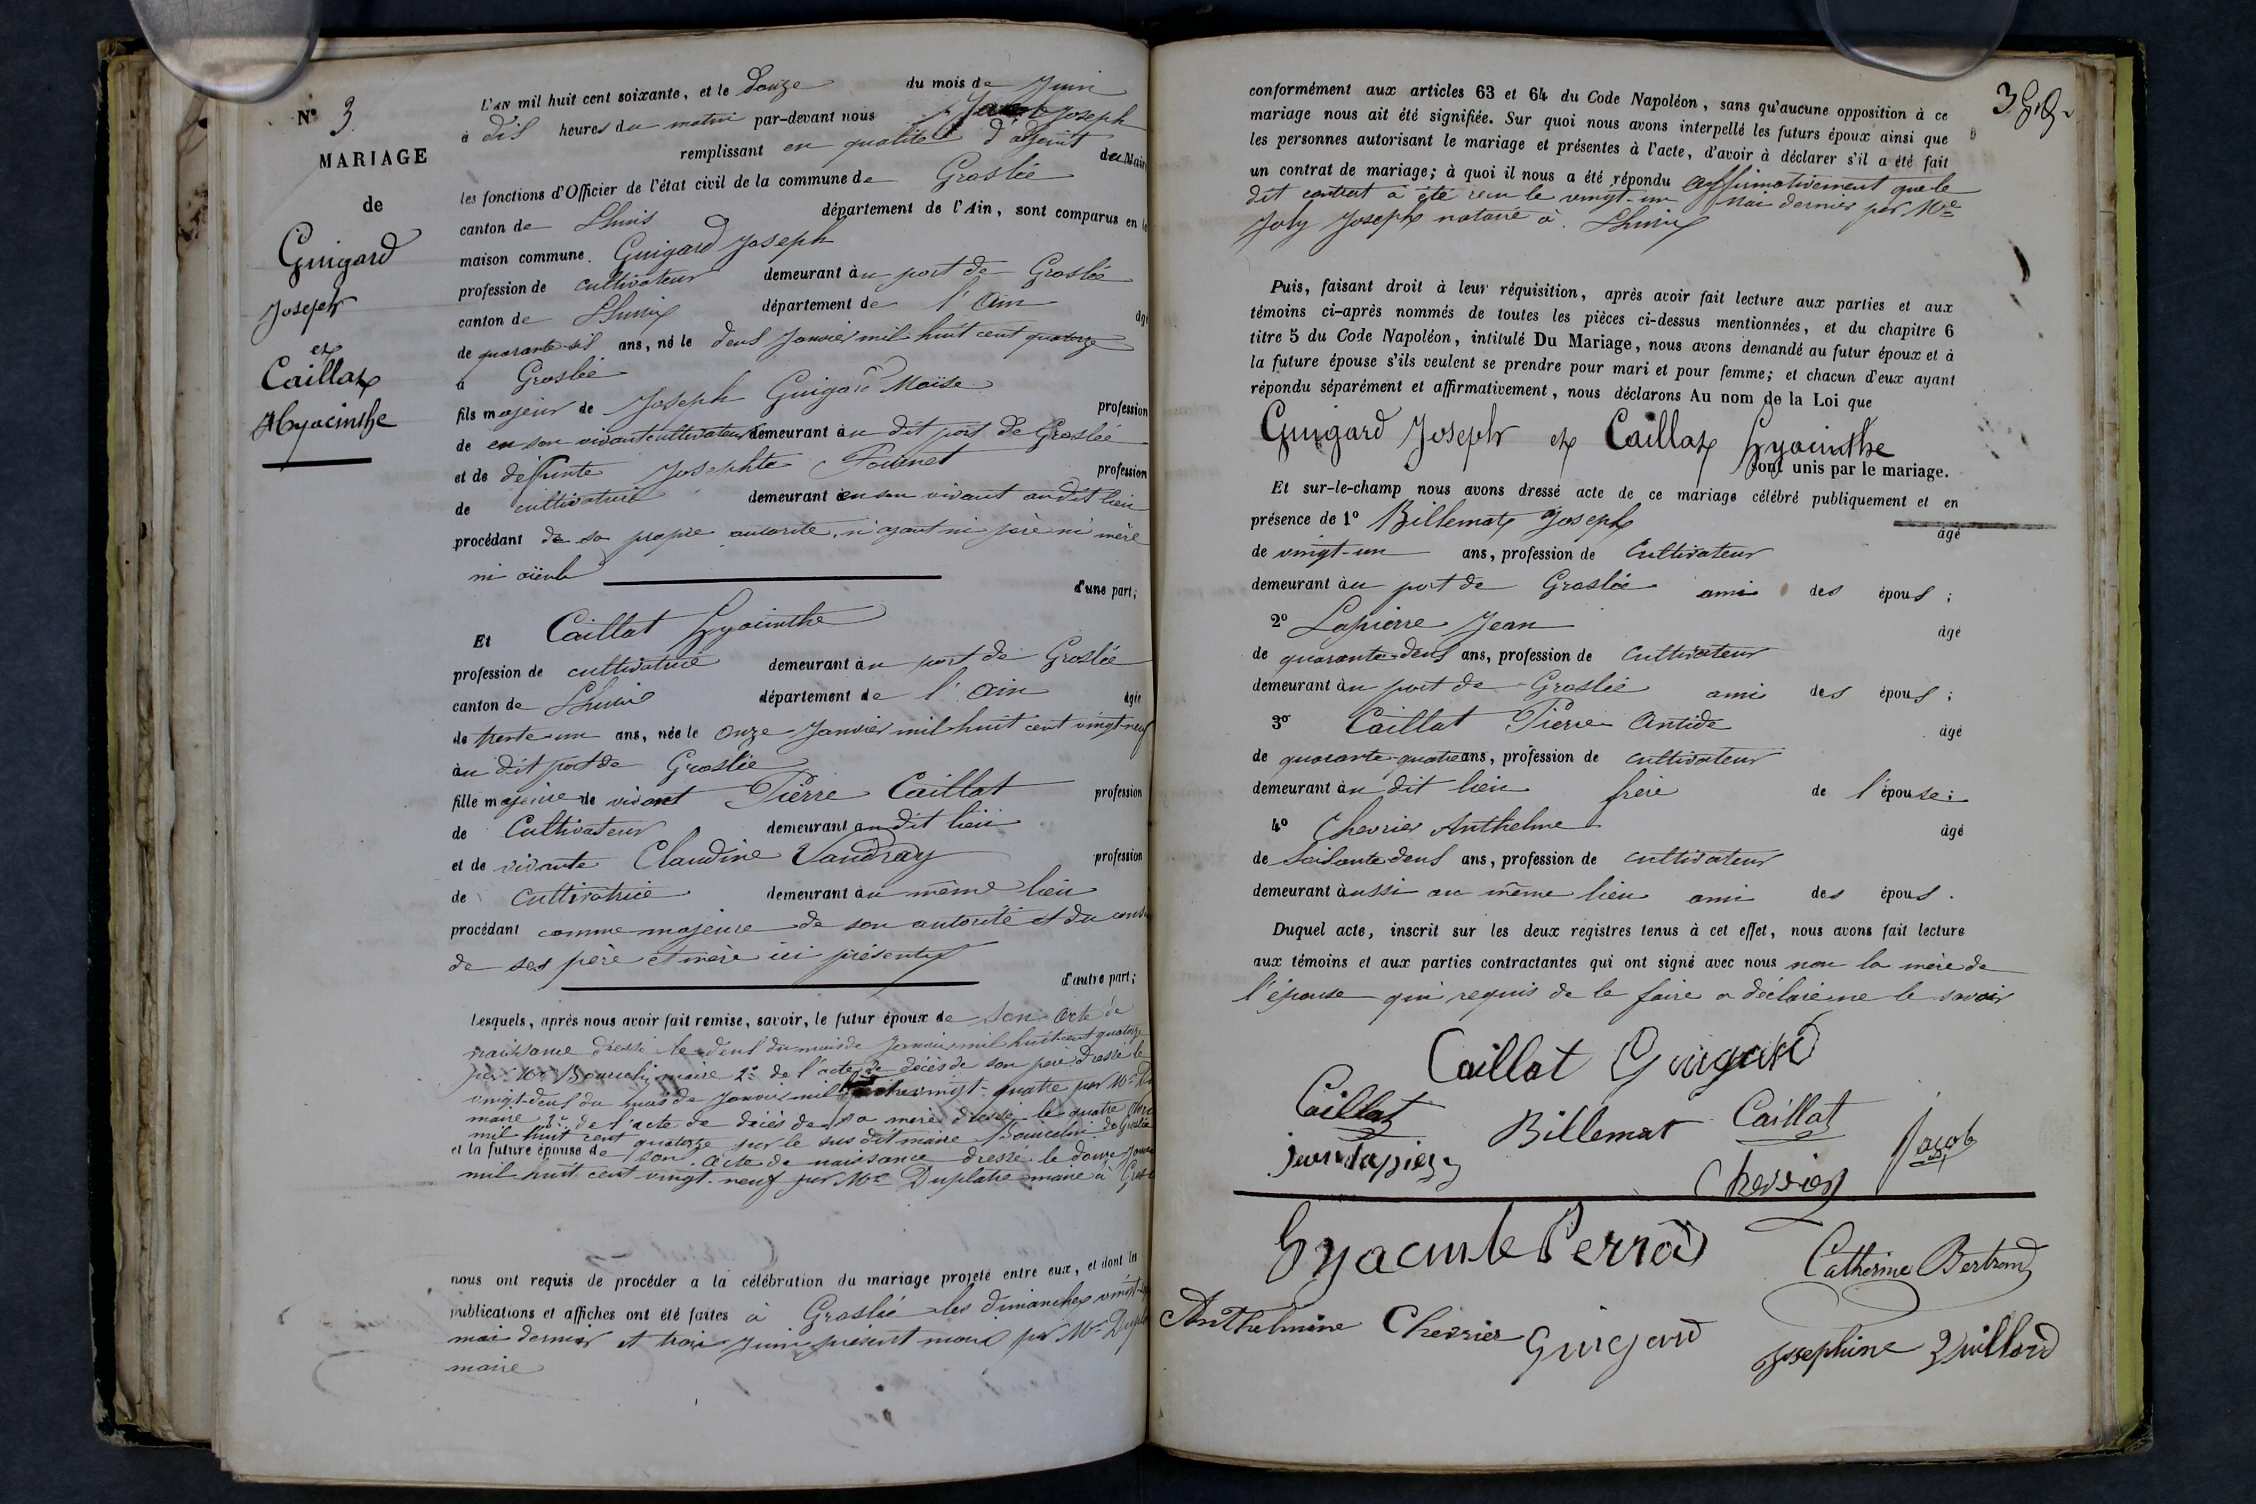 N° 3
MARIAGE
de
Guigard
Joseph
et
Caillat
Hyacinthe
L'AN mil huit cent soixante, et le Douze du mois de Juin
à dix heures du matin par-devant nous Jacob Joseph
remplissant en qualité d'adjoint du Maire
les fonctions d'Officier de l'état civil de la commune de Groslée
canton de Lhuis département de l'Ain, sont comparus en la
maison commune Guigard Joseph
profession de cultivateur demeurant au port de Groslée
canton de Lhuis département de l'Ain âgé
de quarante six ans, né le deux Janvier mil huit cent quatorze
à Groslée
fils majeur de Joseph Guigard Moïse profession
de en son vivant cultivateur demeurant au dit port de Groslée
et de défunte Josephte profession
de cultivatrice demeurant en son vivant audit lieu
procédant de sa propre autorité, n'ayant ni père ni mère
ni aïeuls
d'une part;
Et Caillat Hyacinthe
profession de cultivatrice demeurant au port de Groslée
canton de Lhuis département de l'Ain âgée
de trente-un ans, née le onze Janvier mil huit cent vingt-neuf
au dit port de Groslée
fille majeure de vivant Pierre Caillat profession
de Cultivateur demeurant au dit lieu
et de vivante Claudine Vaudray profession
de cultivatrice demeurant au même lieu
procédant comme majeure de son autorité et du cons
de ses père et mère ici présents
d'autre part;
Lesquels, après nous avoir fait remise, savoir, le futur époux de son acte de
naissance dressé le deux du mois de Janvier mil huit cent quatorze
par Mr maire 2° de l'acte de décès de son père dressé le
vingt-deux du mois de Janvier mil vingt-quatre par Mr
maire de l'acte de décès de sa mère dressé le quatre
mil huit cent quatorze par le sus dit maire de Groslée
et la future épouse de son acte de naissance dressé le douze
mil huit cent vingt-neuf par Mr Duplatre maire à
nous ont requis de procéder a la célébration du mariage projeté entre eux, et dont les
publications et affiches ont été faites à Groslée les dimanches vingt-
mai dernier et trois Juin présent mois par Mr
maire
3
conformément aux articles 63 et 64 du Code Napoléon, sans qu'aucune opposition à ce
mariage nous ait été signifiée. Sur quoi nous avons interpellé les futurs époux ainsi que
les personnes autorisant le mariage et présentes à l'acte, d'avoir à déclarer s'il a été fait
un contrat de mariage; à quoi il nous a été répondu affirmativement que le
dit contrat à été reçu le vingt-un Mai dernier par Me
Joly Joseph notaire à Lhuis
Puis, faisant droit à leur réquisition, après avoir fait lecture aux parties et aux
témoins ci-après nommés de toutes les pièces ci-dessus mentionnées, et du chapitre 6
titre 5 du Code Napoléon, intitulé Du Mariage, nous avons demandé au futur époux et à
la future épouse s'ils veulent se prendre pour mari et pour femme; et chacun d'eux ayant
répondu séparément et affirmativement, nous déclarons Au nom de la Loi que
Guigard Joseph et Caillat Hyacinthe
sont unis par le mariage.
Et sur-le-champ nous avons dressé acte de ce mariage célébré publiquement et en
présence de 1° Billemat Joseph âgé
de vingt-un ans, profession de Cultivateur
demeurant au port de Groslée ami des époux;
2° Lapierre Jean âgé
de quarante-deux ans, profession de Cultivateur
demeurant au port de Groslée ami des époux;
3° Caillat Pierre Antide âgé
de quarante-quatre ans, profession de cultivateur
demeurant au dit lieu frère de l'épouse;
4° Chevrier Anthelme âgé
de soixante deux ans, profession de cultivateur
demeurant aussi au même lieu ami des époux.
Duquel acte, inscrit sur les deux registres tenus à cet effet, nous avons fait lecture
aux témoins et aux parties contractantes qui ont signé avec nous non la mère de
l'épouse qui requis de le faire a déclaré ne le savoir
Caillat Guigard
Caillat Billemat Caillat Jacob
Jean Lapierre Chevrier
Hyacinte Perrod Catherine Bertrand
Anthelmine Chevrier Guigard Josephine Quillard